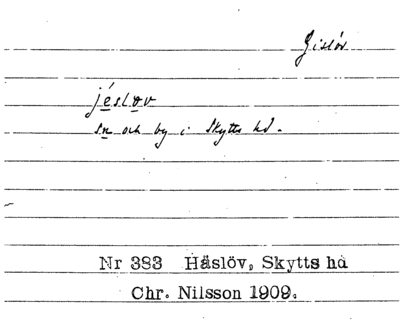 Gislöv
jéslov
sn och by i Skytts hd.
Nr 383 Häslöv, Skytts hd
Chr. Nilsson 1909.